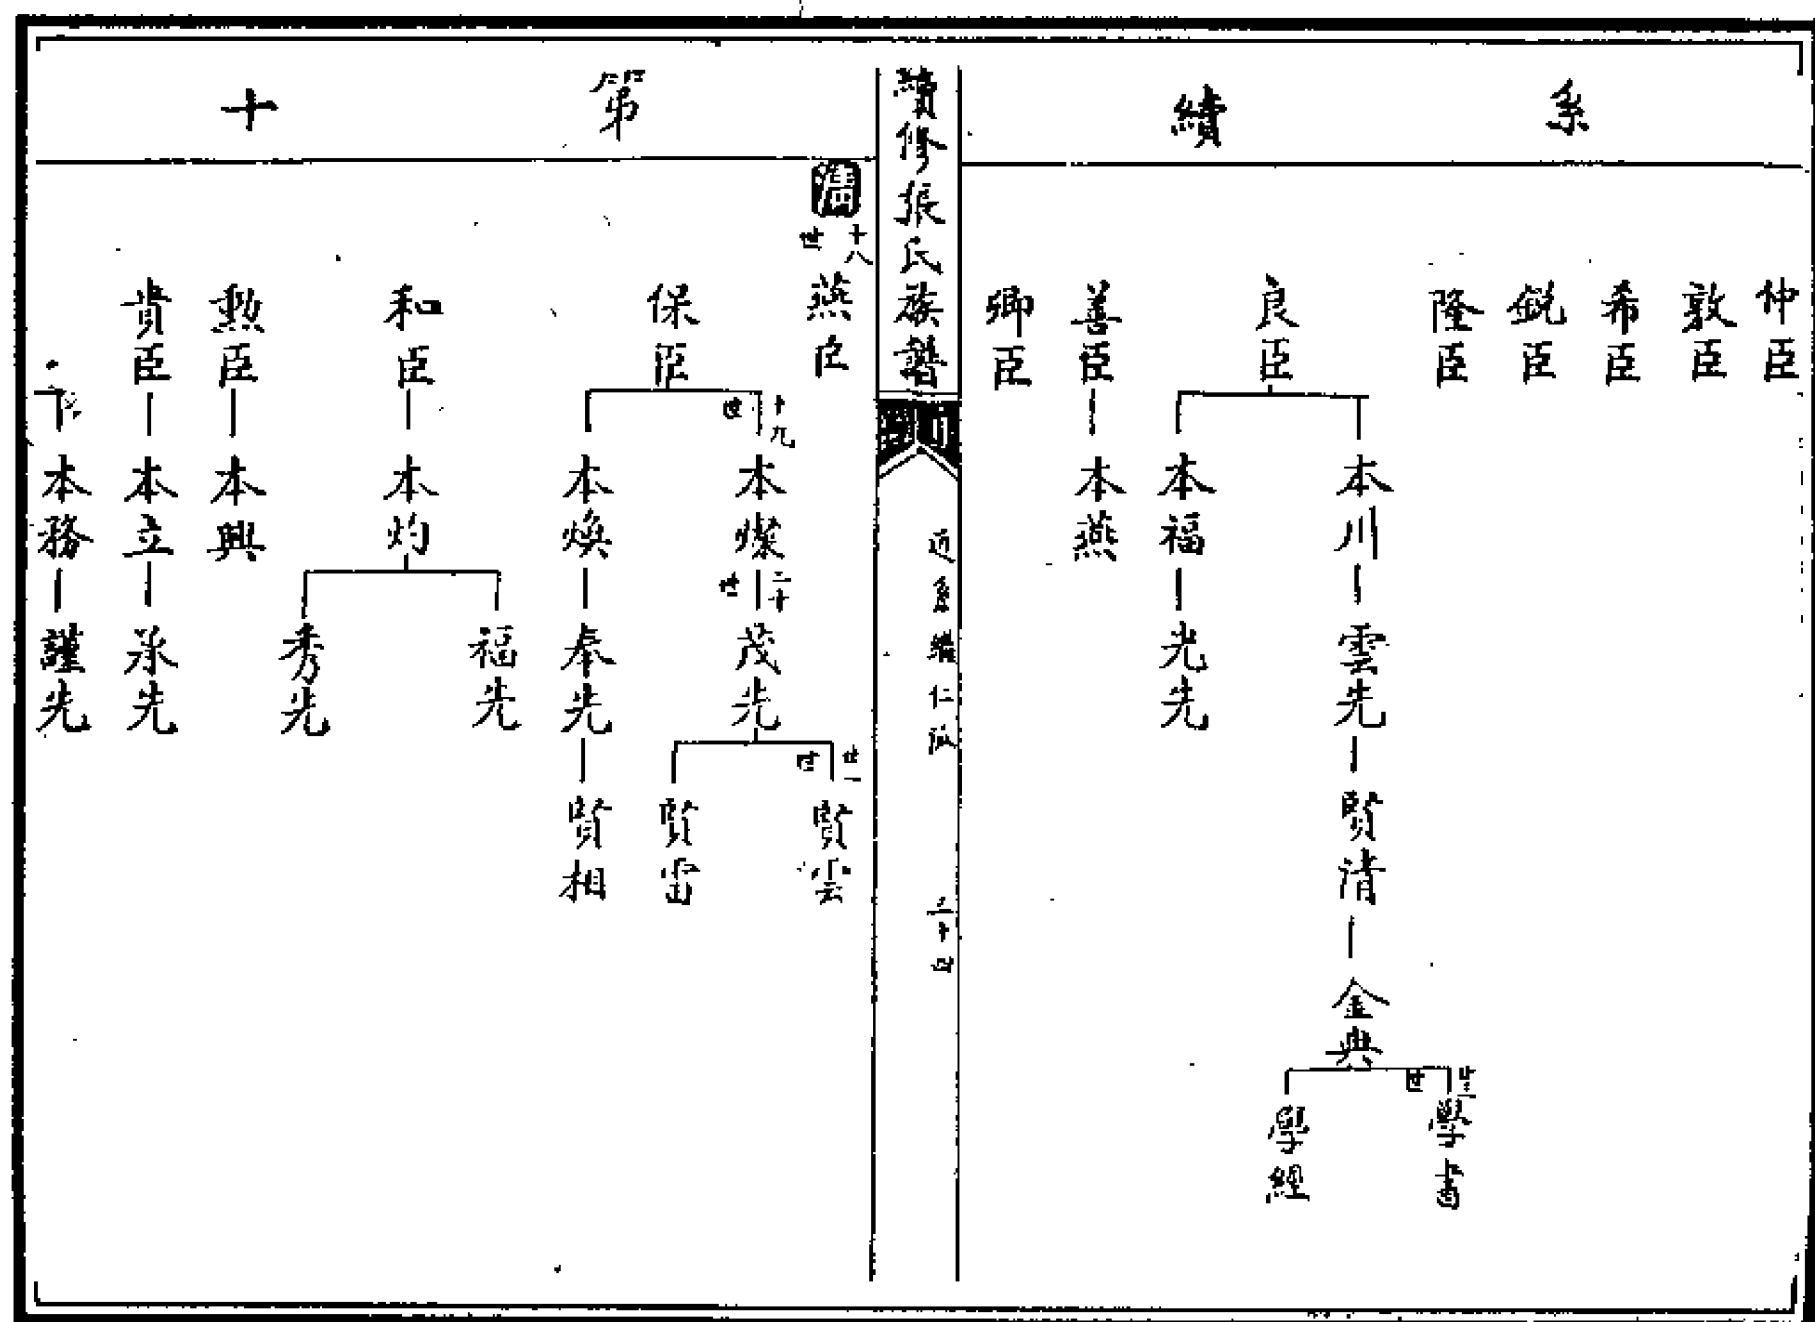 系續
仲臣
敦臣
希臣
銳臣
隆臣
良臣
本川
雲先
賢清
金典
廿二世
學書
學經
本福
光先
善臣
本燕
卿臣
續修張氏族譜
仁派
第十
十八世
燕臣
保臣
十九世
本燦
二十世
茂先
廿一世
賢雲
賢雷
本煥
奉先
賢相
和臣
本灼
福先
秀先
勲臣
本興
貴臣
本立
承先
本務
謹先